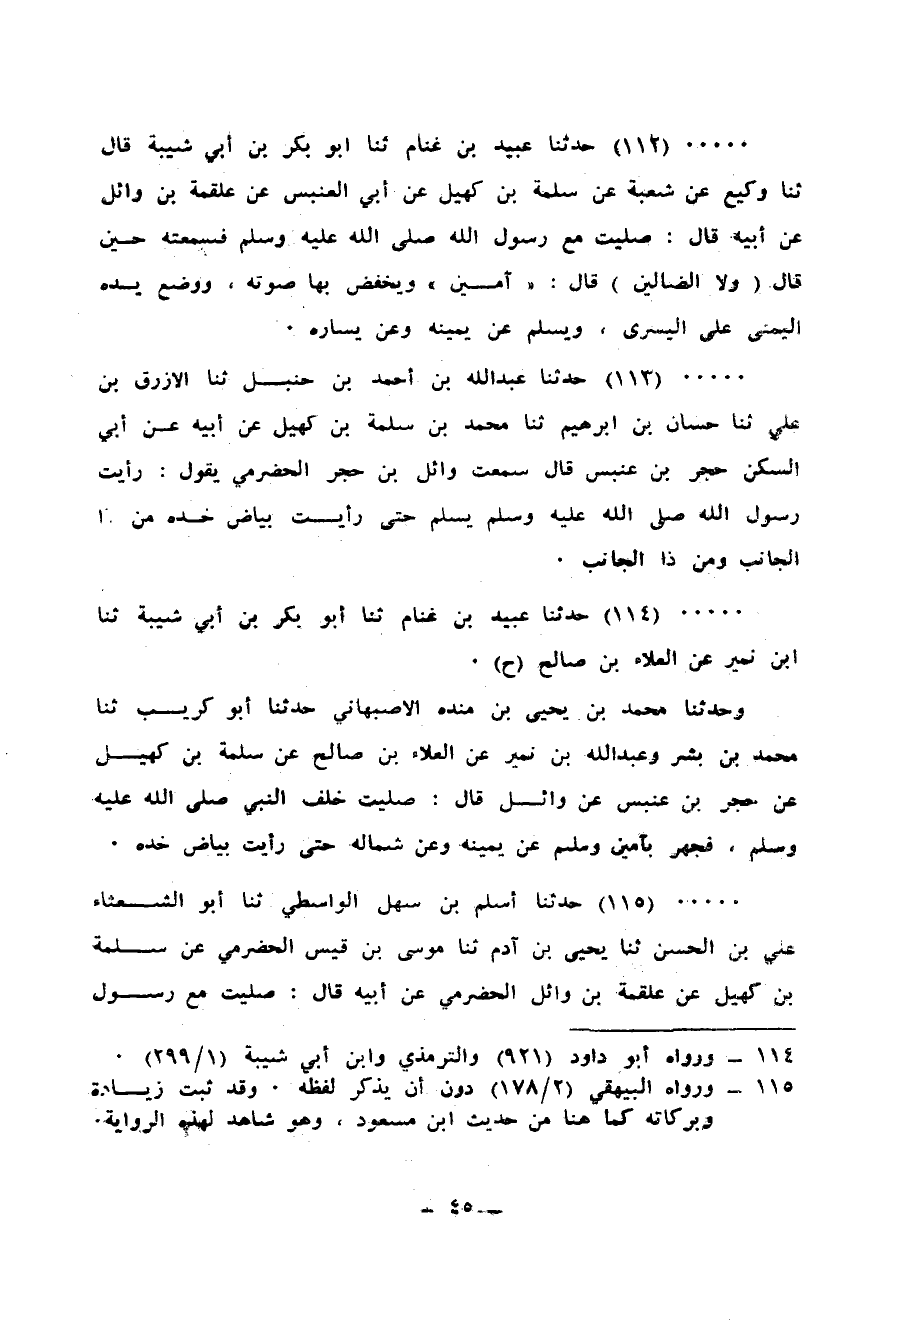 ٠٠٠٠٠ (١١٢) حدثنا عبيد بن غنام ثنا ابو بكر بن أبي شيبة قال
ثنا وكيع عن شعبة عن سلمة بن كهيل عن أبي العنبس عن علقمة بن وائل
عن أبيه قال : صليت مع رسول الله صلى الله عليه وسلم فسمعته حـين
قال ( ولا الضالين ) قال : « آمـــين » ويخفض بها صوته ، ووضع يـده
اليمنى على اليسرى ، ويسلم عن يمينه وعن يساره ٠
٠٠٠٠٠ (١١٣) حدثنا عبدالله بن أحمد بن حنبـــل ثنا الازرق بن
علي ثنا حسان بن ابرهيم ثنا محمد بن سلمة بن كهيل عن أبيه عـن أبي
السكن حجر بن عنبس قال سمعت وائل بن حجر الحضرمي يقول : رأيت
رسول الله صلى الله عليه وسلم يسلم حتى رأيـــت بياض خـده من ١
الجانب ومن ذا الجانب ٠
٠٠٠٠٠ (١١٤) حدثنا عبيد بن غنام ثنا أبو بكر بن أبي شيبة ثنا
ابن نمير عن العلاء بن صالح (ح) ٠
وحدثنا محمد بن يحيى بن منده الاصبهاني حدثنا أبو كريـــب ثنا
محمد بن بشر وعبدالله بن نمير عن العلاء بن صالح عن سلمة بن كهيـــل
عن حجر بن عنبس عن وائـــل قال : صليت خلف النبي صلى الله عليه
وسلم ، فجهر بآمين وسلم عن يمينه وعن شماله حتى رأيت بياض خده ٠
٠٠٠٠٠ (١١٥) حدثنا أسلم بن سهل الواسطي ثنا أبو الشـــعثاء
علي بن الحسن ثنا يحيى بن آدم ثنا موسى بن قيس الحضرمي عن ســـلمة
بن كهيل عن علقمة بن وائل الحضرمي عن أبيه قال : صليت مع رســـول
١١٤ ــ ورواه أبو داود (٩٢١) والترمذي وابن أبي شيبة (٢٩٩/١) ٠
١١٥ ــ ورواه البيهقي (١٧٨/٢) دون أن يذكر لفظه ٠ وقد ثبت زيـــادة
وبركاته كما هنا من حديث ابن مسعود ، وهو شاهد لهذه الرواية٠
ــ ٤٥ ــ